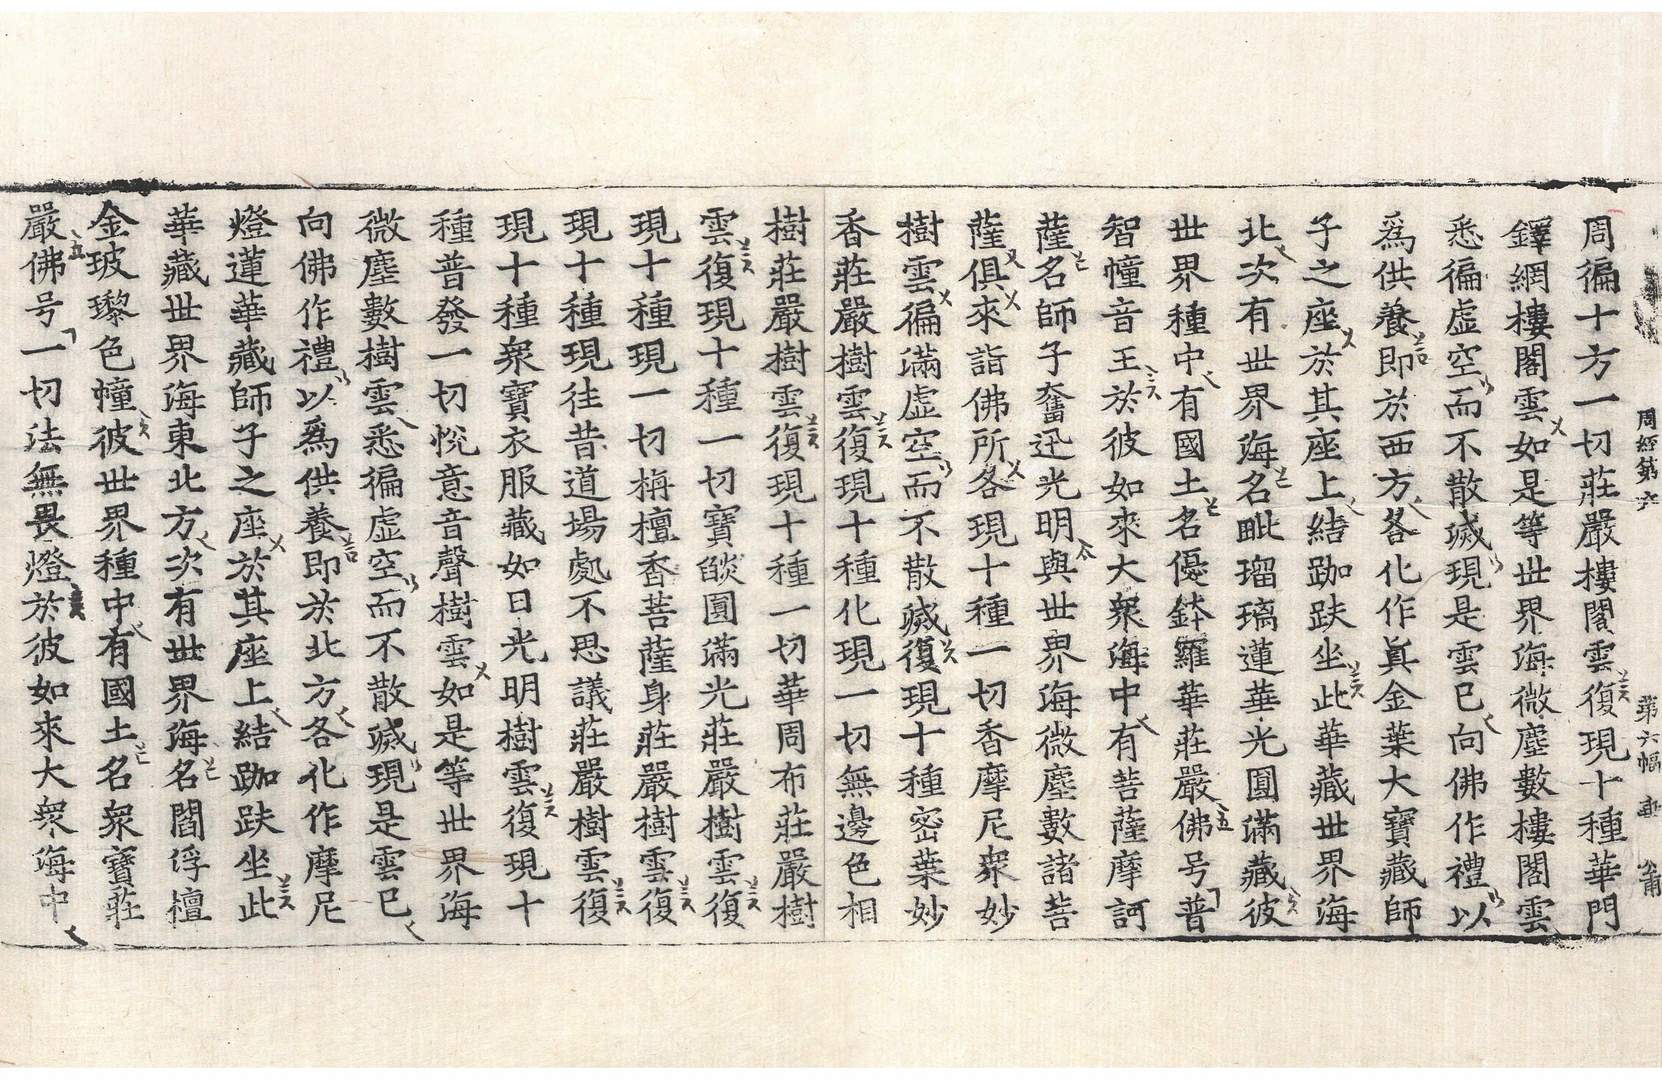 周經第六 第六幅
周徧十方一切莊嚴樓閣雲復現十種華門
鐸網樓閣雲如是等世界海微塵數樓閣雲
悉徧虛空而不散滅現是雲已向佛作禮以
爲供養即於西方各化作眞金葉大寶藏師
子之座於其座上結跏趺坐此華藏世界海
北次有世界海名毗瑠璃蓮華光圓滿藏彼
世界種中有國土名優鉢羅華莊嚴佛号普
智幢音王於彼如來大衆海中有菩薩摩訶
薩名師子奮迅光明與世界海微塵數諸菩
薩俱來詣佛所各現十種一切香摩尼衆妙
樹雲徧滿虛空而不散滅復現十種密葉妙
香莊嚴樹雲復現十種化現一切無邊色相
樹莊嚴樹雲復現十種一切華周布莊嚴樹
雲復現十種一切寶燄圓滿光莊嚴樹雲復
現十種現一切栴檀香菩薩身莊嚴樹雲復
現十種現往昔道場處不思議莊嚴樹雲復
現十種衆寶衣服藏如日光明樹雲復現十
種普發一切悅意音聲樹雲如是等世界海
微塵數樹雲悉徧虛空而不散滅現是雲已
向佛作禮以爲供養即於北方各化作摩尼
燈蓮華藏師子之座於其座上結跏趺坐此
華藏世界海東北方次有世界海名閻浮檀
金玻瓈色幢彼世界種中有國土名衆寶莊
嚴佛号一切法無畏燈於彼如來大衆海中